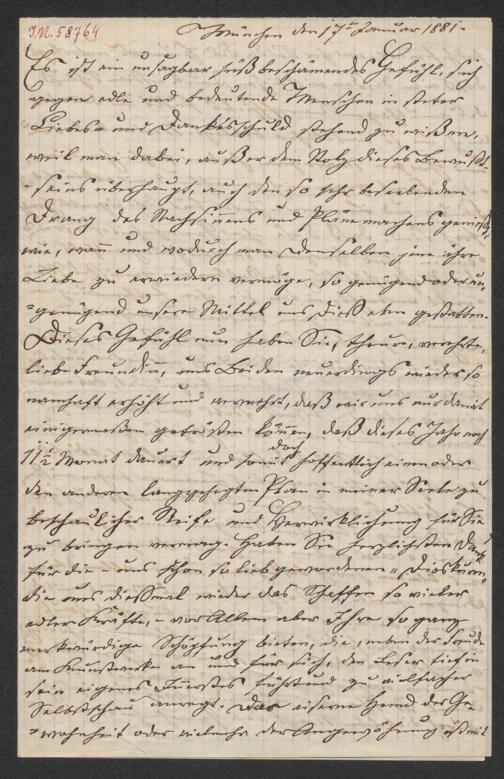 I.N. 58764
München den 17t Januar 1881.
Es ist ein unsagbar süß beschämendes Gefühl, sich
gegen edle und bedeutende Menschen in steter
Liebes- und Dankesschuld stehend zu wißen,
weil man dabei, außer dem Stolz dieses Bewußt-
-seins überhaupt, auch den so sehr beseelenden
Drang des Nachsinnens und Plänemachens genießt,
wie, wann und wodurch man denselben jene ihre
Liebe zu erwiedern vermöge, so genügend oder un-
-genügend unsere Mittel uns dieß eben gestatten.
Dieses Gefühl nun haben Sie, theure, verehrte,
liebe Freundin, uns Beiden neuerdings wieder so
namhaft erhöht und vermehrt, daß wir uns nur damit
einigermaßen getrösten können, daß dieses Jahr noch
11½ Monat dauert und somit doch hoffentlich einen oder
den anderen langgehegten Plan in meiner Seele zu
beschaulicher Reife und Verwirklichung für Sie
zu bringen vermag. Haben Sie herzlichsten Dank
für die - uns schon so lieb gewordenen "Dioskuren"
die uns dießmal wieder das Schaffen so vieler
edler Kräfte, - vor Allem aber Ihre so ganz
merkwürdige Schöpfung bieten, die, neben der Freude
am Kunstwerke an und für sich, den Leser tief in
sein eigenes Innerstes führt und zu vielfacher
Selbstschau anregt. Das eiserne Hemd der Ge-
-wohnheit oder vielmehr der Angewöhnung ist mit